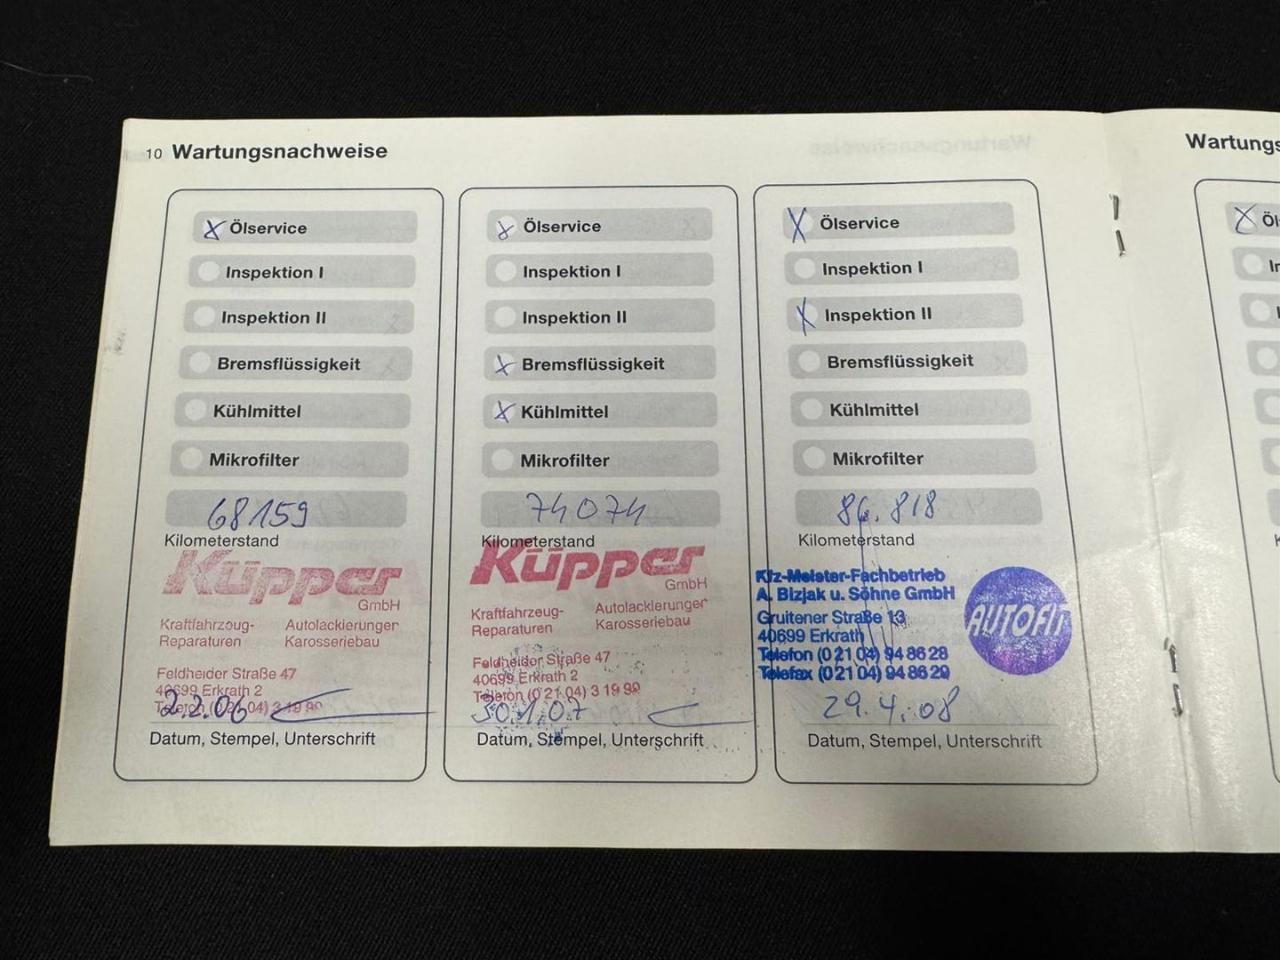 10 Wartungsnachweise
X Ölservice
Inspektion I
Inspektion II
Bremsflüssigkeit
Kühlmittel
Mikrofilter
68159
Kilometerstand
Küpper
GmbH
Kraftfahrzeug-
Reparaturen
Autolackierungen
Karosseriebau
Feldheider Straße 47
40699 Erkrath 2
Telefon (0 21 04) 3 19 90
2.2.06
Datum, Stempel, Unterschrift
X Ölservice
Inspektion I
Inspektion II
X Bremsflüssigkeit
X Kühlmittel
Mikrofilter
74074
Kilometerstand
Küpper
GmbH
Kraftfahrzeug-
Reparaturen
Autolackierungen
Karosseriebau
Feldheider Straße 47
40699 Erkrath 2
Telefon (0 21 04) 3 19 90
30.1.07
Datum, Stempel, Unterschrift
X Ölservice
Inspektion I
X Inspektion II
Bremsflüssigkeit
Kühlmittel
Mikrofilter
86.818
Kilometerstand
Kfz-Meister-Fachbetrieb
A. Bizjak u. Söhne GmbH
Gruitener Straße 13
40699 Erkrath
Telefon (0 21 04) 94 86 28
Telefax (0 21 04) 94 86 29
AUTOFIT
29.4.08
Datum, Stempel, Unterschrift
Wartungs
X Öl